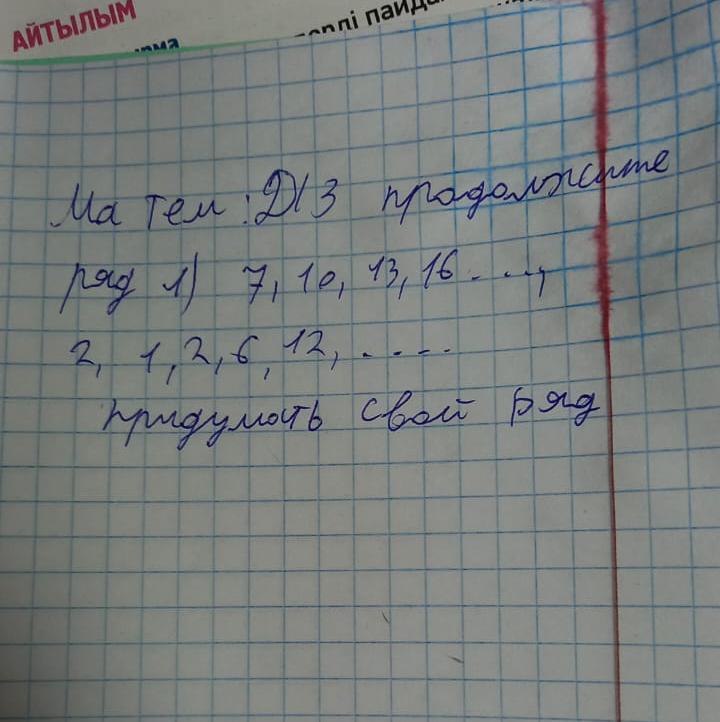 АЙТЫЛЫМ
рма
пайда
Матем: Д/З продолжите
ряд 1) 7, 10, 13, 16 ....,
2, 1, 2, 6, 12, ....
придумать свой ряд